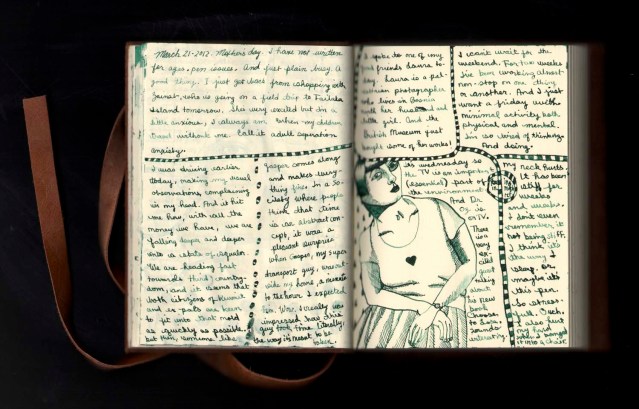 March 21-2012. Mother's day. I have not written
for ages. pen issues. And just plain busy. A
good thing. I just got back from shopping with
who is going on a field trip to Failaka
Island tomorrow. She very excited but I'm a
little anxious, I always am when my children
travel without me. Call it adult separation
anxiety.
I was driving earlier
today, making my usual
observations, complaining
in my head. And it hit
me how, with all the
money we have, we are
falling deeper and deeper
into a state of
We are heading fast
towards third country-
dom, and it seems that
both citizens of Kuwait
and ex pats are keen
to fit into that mold
as quickly as possible.
but then, someone like
Jasper comes along
and makes every
thing fine. In a so-
ciety where people
think that time
is an abstract con-
cept, it was a
pleasant surprise
when Jasper, my super
transport guy,
side my home, a minute
to the hour I expected
him. Wow, I really was
impressed that this
guy took time literally,
the way it's meant to be
taken.
I spoke to one of my
good friends Laura to-
day. Laura is a Pal-
estinian photographer
who lives in
with her husband and
little girl. And the
British Museum just
bought some of her works!
I can't wait for the
weekend. For two weeks
I've been working almost
non-stop on one thing
or another. And I just
want a Friday with
minimal activity both
physical and mental.
I'm so tired of thinking.
And doing.
It's Wednesday so
the TV is an important
(essential) part of
the environment
And Dr
Oz is
on TV.
There
is a
very
excited
guest
talking
about
his new
book
Choose
to Lose.
Sounds
interesting.
my neck hurts.
It has been
stiff for
weeks
and weeks.
I don't even
remember it
not being stiff.
I think it's
the way I
sleep, or
maybe it's
this pen.
So stress-
full. Ouch.
I also hurt
my hand
when I banged
it into a chair.